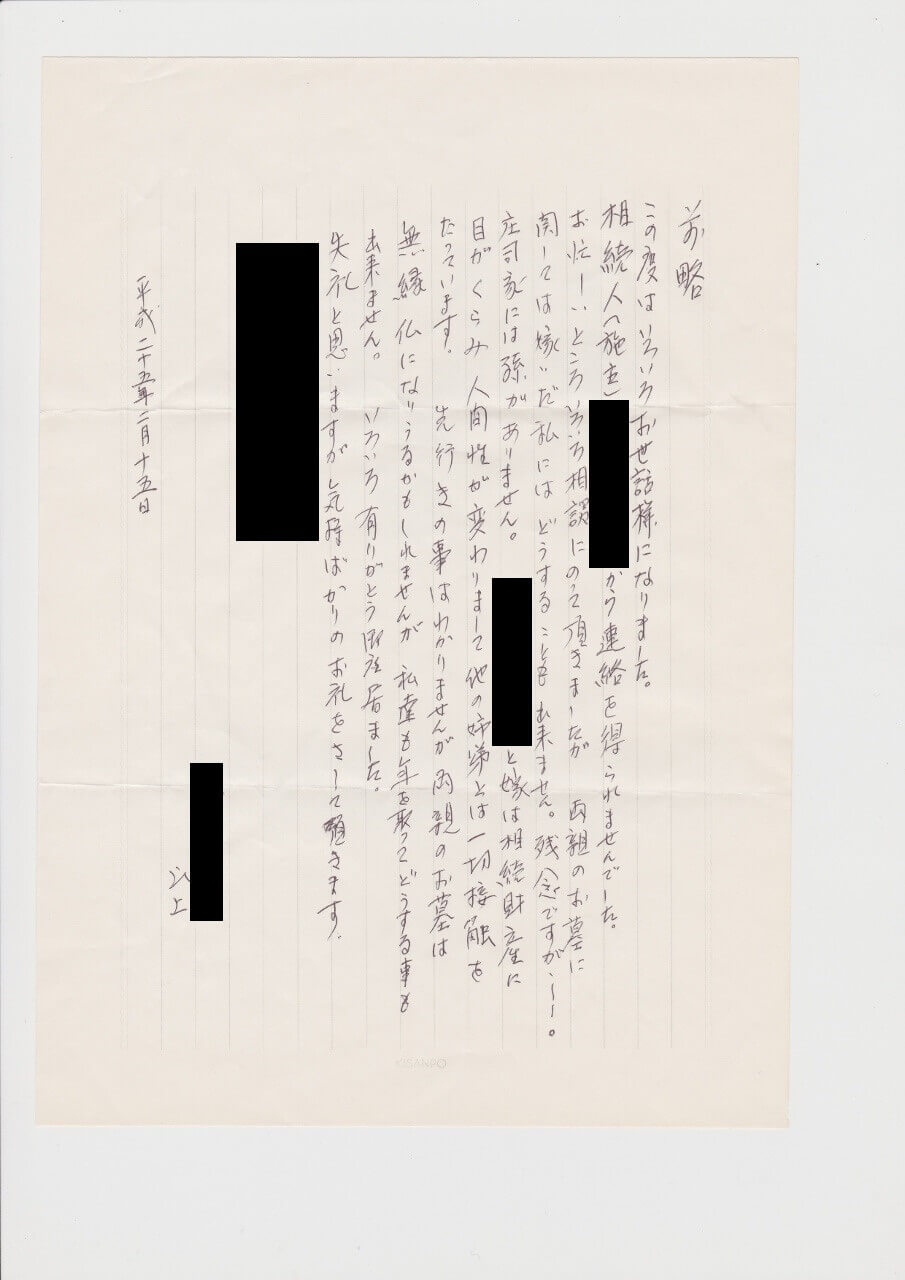 前略
この度はいろいろお世話様になりました。
相続人(施主)から連絡を得られませんでした。
お忙しいところいろいろ相談にのって頂きましたが 両親のお墓に
関しては嫁いだ私にはどうすることも出来ません。残念ですが…。
庄司家には孫がありません。と嫁は相続財産に
目がくらみ 人間性が変わりまして他の姉弟とは一切接触を
たっています。 先行きの事はわかりませんが両親のお墓は
無縁仏になりうるかもしれませんが 私達も年を取ってどうする事も
出来ません。 いろいろ有りがとう御座居ました。
失礼と思いますが気持ばかりのお礼をさして頂きます。
平成二十五年二月十五日
以上
KISANPO